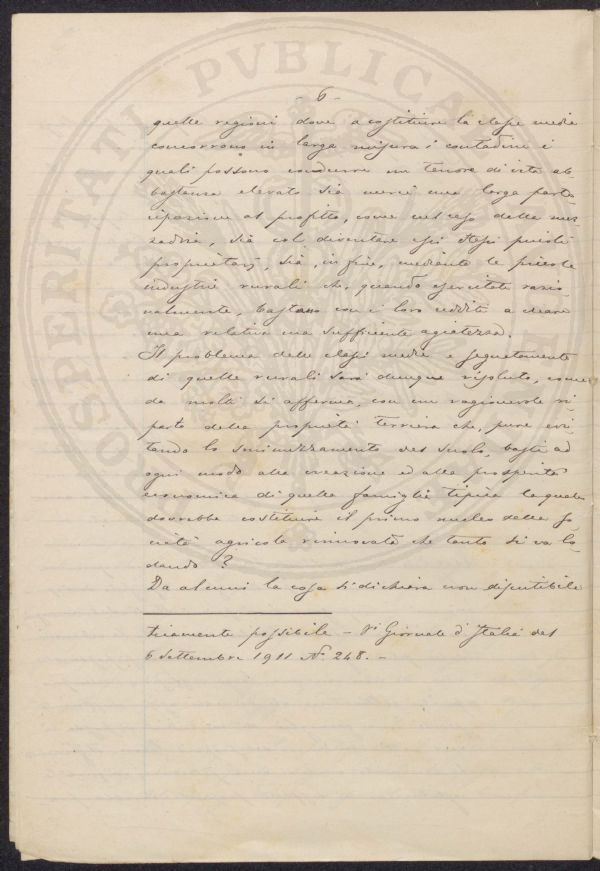 - 6 -
quelle regioni dove a costituire la classe media
concorrono in larga misura i contadini i
quali possono condurre un tenore di vita ab-
bastanza elevato sia mercè una larga parte-
cipazione al profitto, come nel caso della mez-
zadria, sia col diventare essi stessi piccoli
proprietarj, sia, in fine, mediante le piccole
industrie rurali che, quando esercitate razio-
nalmente, bastano con i loro redditi a creare
una relativa ma sufficiente agiatezza.
Il problema delle classi medie e segnatamente
di quelle rurali sarà dunque risoluto, come
da molti si afferma, con un ragionevole ri-
parto della proprietà terriera che, pure evi-
tando lo sminuzzamento del suolo, basti ad
ogni modo alla creazione ed alla prosperità
economica di quella famiglia tipica la quale
dovrebbe costituire il primo nucleo della so-
cietà agricola rinnovata che tanto si va lo-
dando?
Da alcuni la cosa si dichiara non discutibile
ticamente possibile - Il Giornale d'Italia del
6 Settembre 1911 N. 248. -
PROSPERITATI PVBLICAE